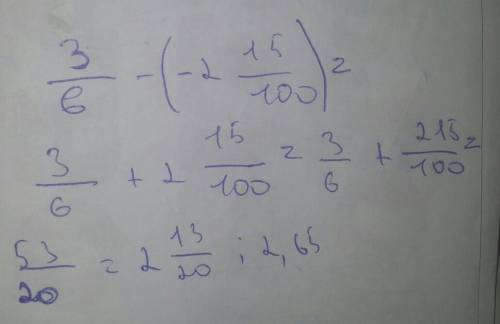 3/6 - (-2 15/100) =
3/6 + 2 15/100 = 3/6 + 215/100 =
53/20 = 2 13/20 ; 2,65